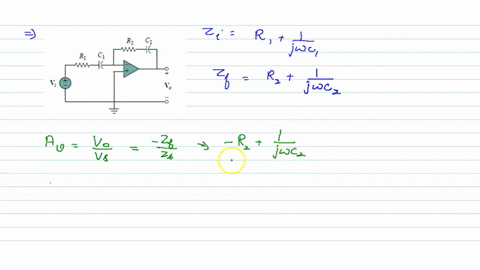 ⇒
R₂ C₂
R₁ C₁
Vₛ
Vₒ
Zᵢ = R₁ + 1/jωC₁
Z_f = R₂ + 1/jωC₂
Aᵥ = Vₒ/Vₛ = -Z_f/Zₛ → -R₂ + 1/jωC₂